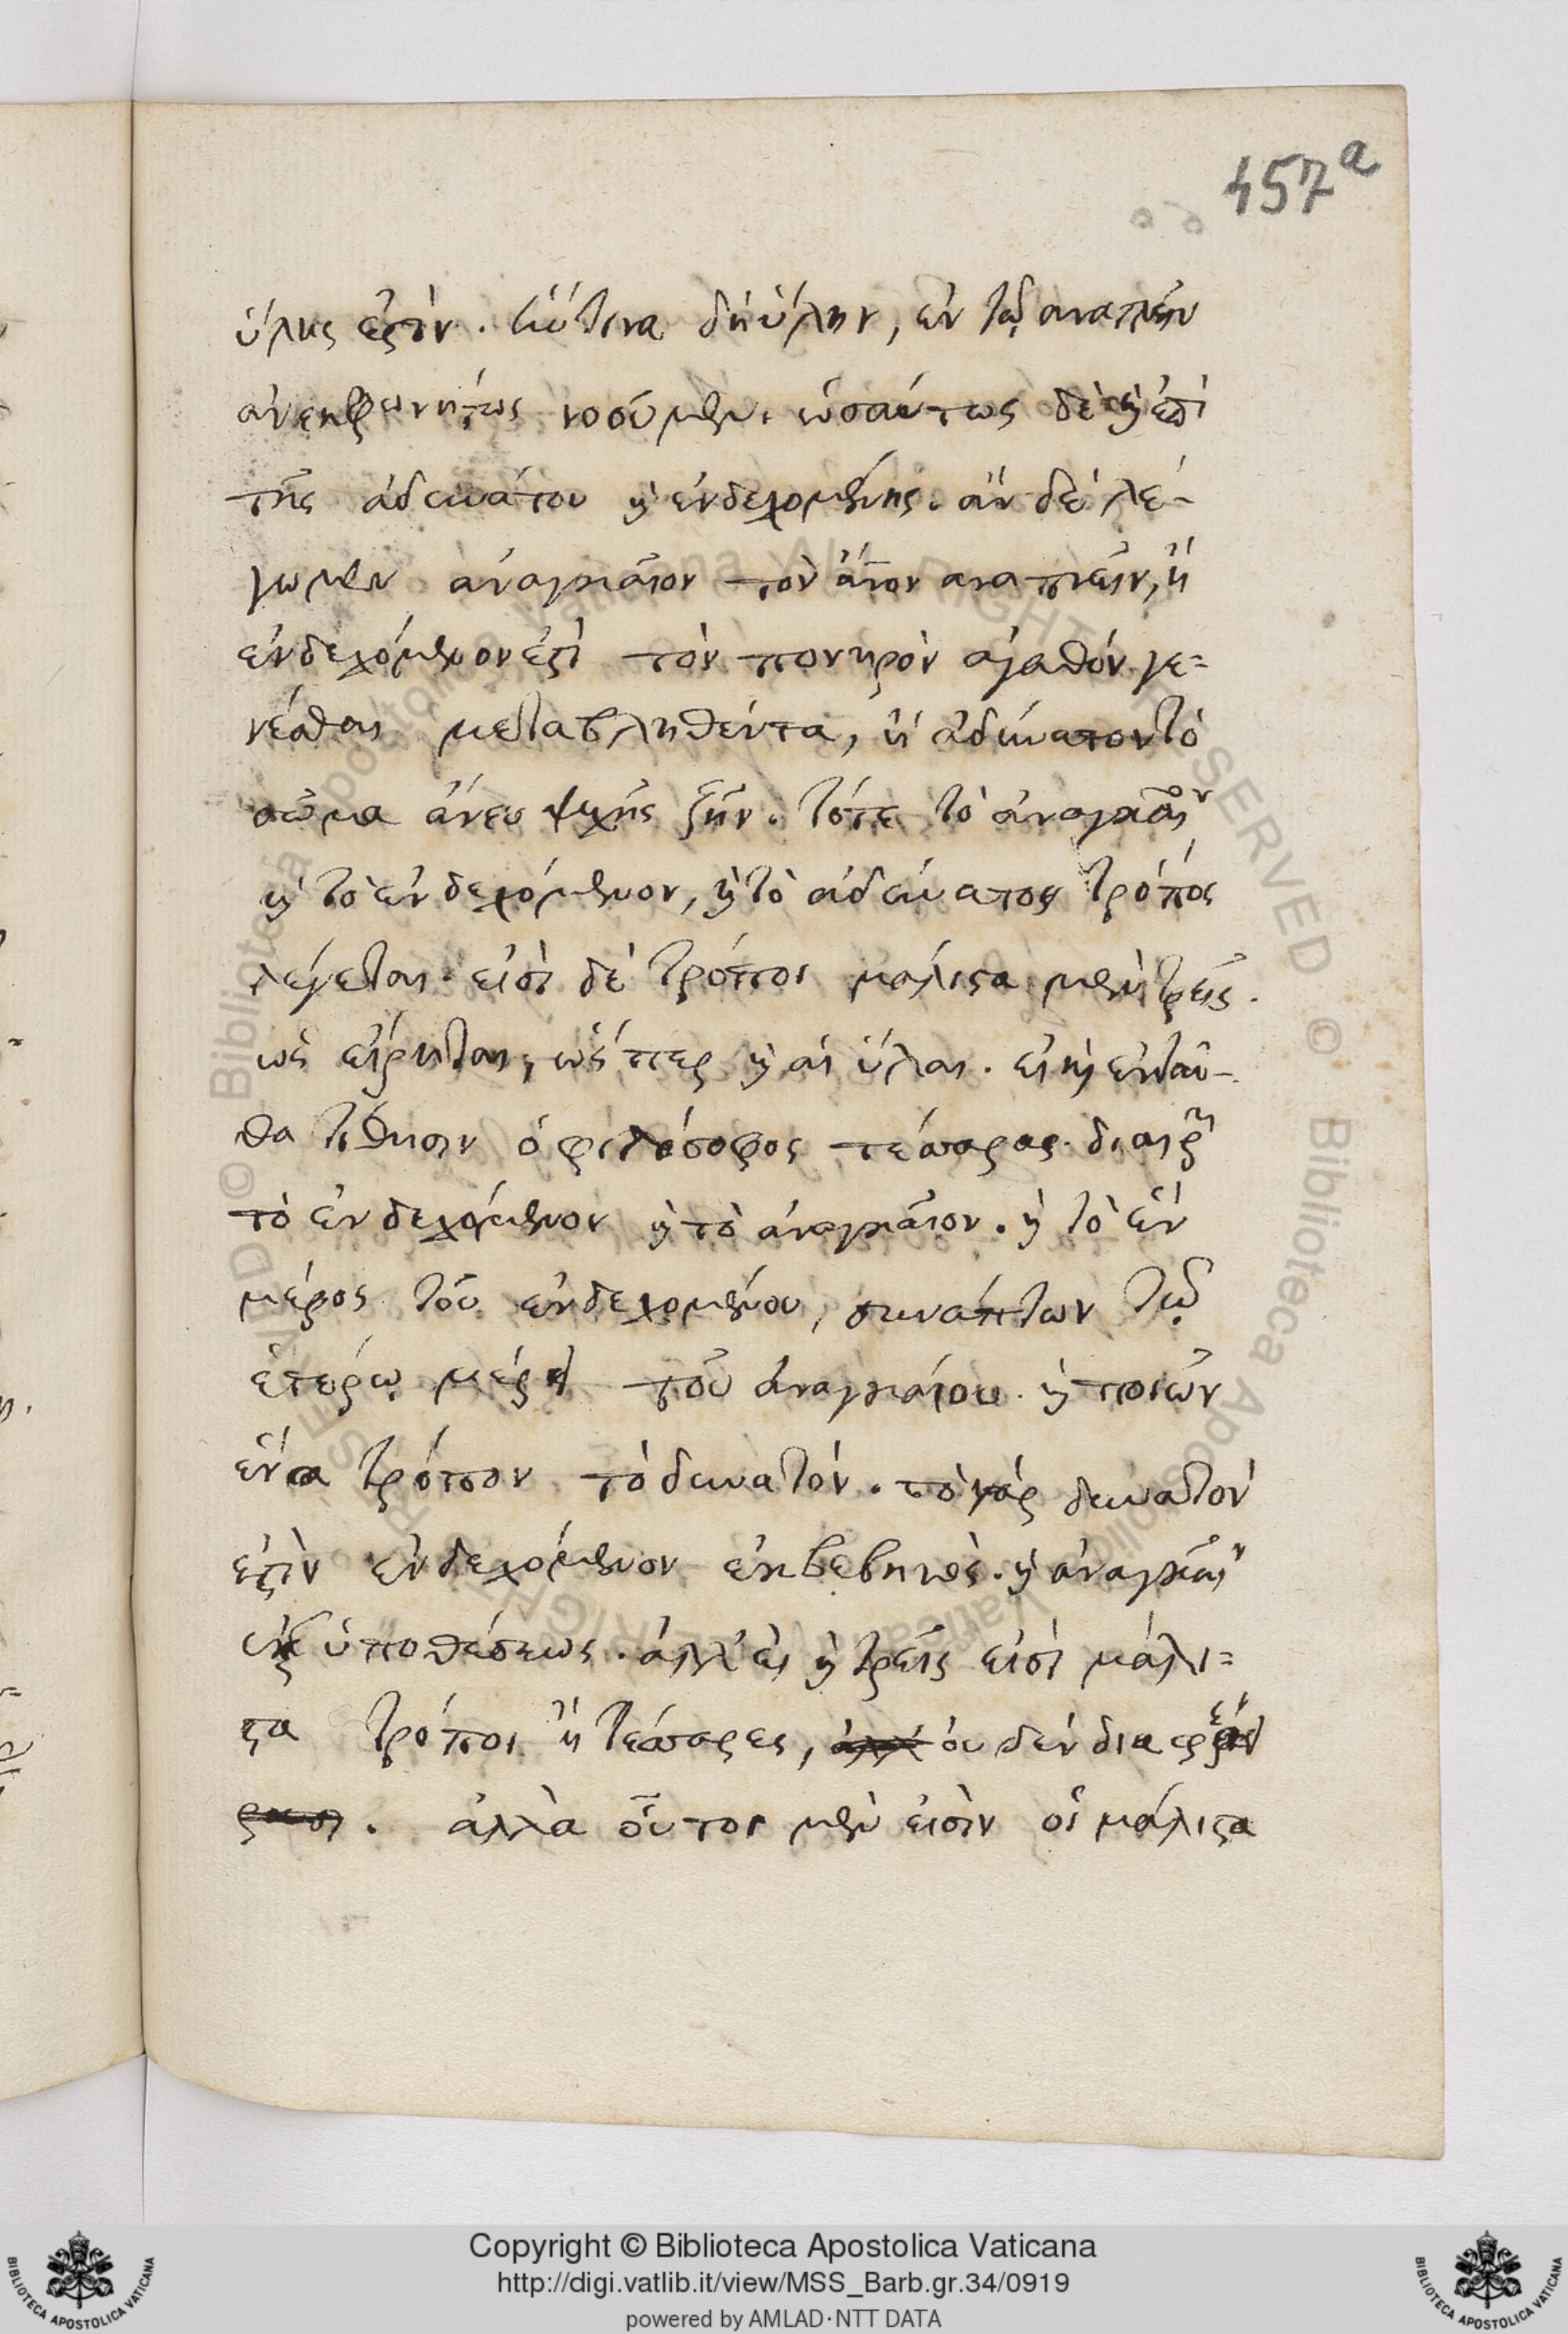 457a
ὕλης ἐστίν. ἥντινα δὴ ὕλην, ἐν τῷ ἀναπνεῖν
ἀνεκφωνήτως νοοῦμεν. ὡσαύτως δὲ καὶ ἐπὶ
τῆς ἀδυνάτου καὶ ἐνδεχομένης. ἂν δὲ λέ-
γωμεν ἀναγκαῖον τὸν ἄνον ἀναπνεῖν, ἢ
ἐνδεχόμενον ἐστὶ τὸν πονηρὸν ἀγαθὸν γε=
νέσθαι μεταβληθέντα, ἢ ἀδύνατον τὸ
σῶμα ἄνευ ψυχῆς ζῆν. τότε τὸ ἀναγκαῖον
καὶ τὸ ἐνδεχόμενον, καὶ τὸ ἀδύνατον τρόπος
λέγεται. εἰσὶ δὲ τρόποι μάλιστα μὲν τρεῖς.
ὡς εἴρηται, ὥσπερ καὶ αἱ ὕλαι. εἰ καὶ ἐνταῦ-
θα τίθησιν ὁ φιλόσοφος τέσσαρας. διαιρεῖ
τὸ ἐνδεχόμενον καὶ τὸ ἀναγκαῖον. καὶ τὸ ἓν
μέρος τοῦ ἐνδεχομένου, συνάπτων τῷ
ἑτέρῳ μέρει τοῦ ἀναγκαίου. καὶ ποιῶν
ἕνα τρόπον τὸ δυνατόν. τὸ γὰρ δυνατὸν
ἐστὶν ἐνδεχόμενον ἐκβεβηκὸς. καὶ ἀναγκαῖον
ἐξ ὑποθέσεως. ἀλλ' εἰ καὶ τρεῖς εἰσὶ μάλι=
στα τρόποι ἢ τέσσαρες, οὐδὲν διαφέρει
. ἀλλὰ οὗτοι μὲν εἰσὶν οἱ μάλιστα
Copyright © Biblioteca Apostolica Vaticana
http://digi.vatlib.it/view/MSS_Barb.gr.34/0919
powered by AMLAD·NTT DATA